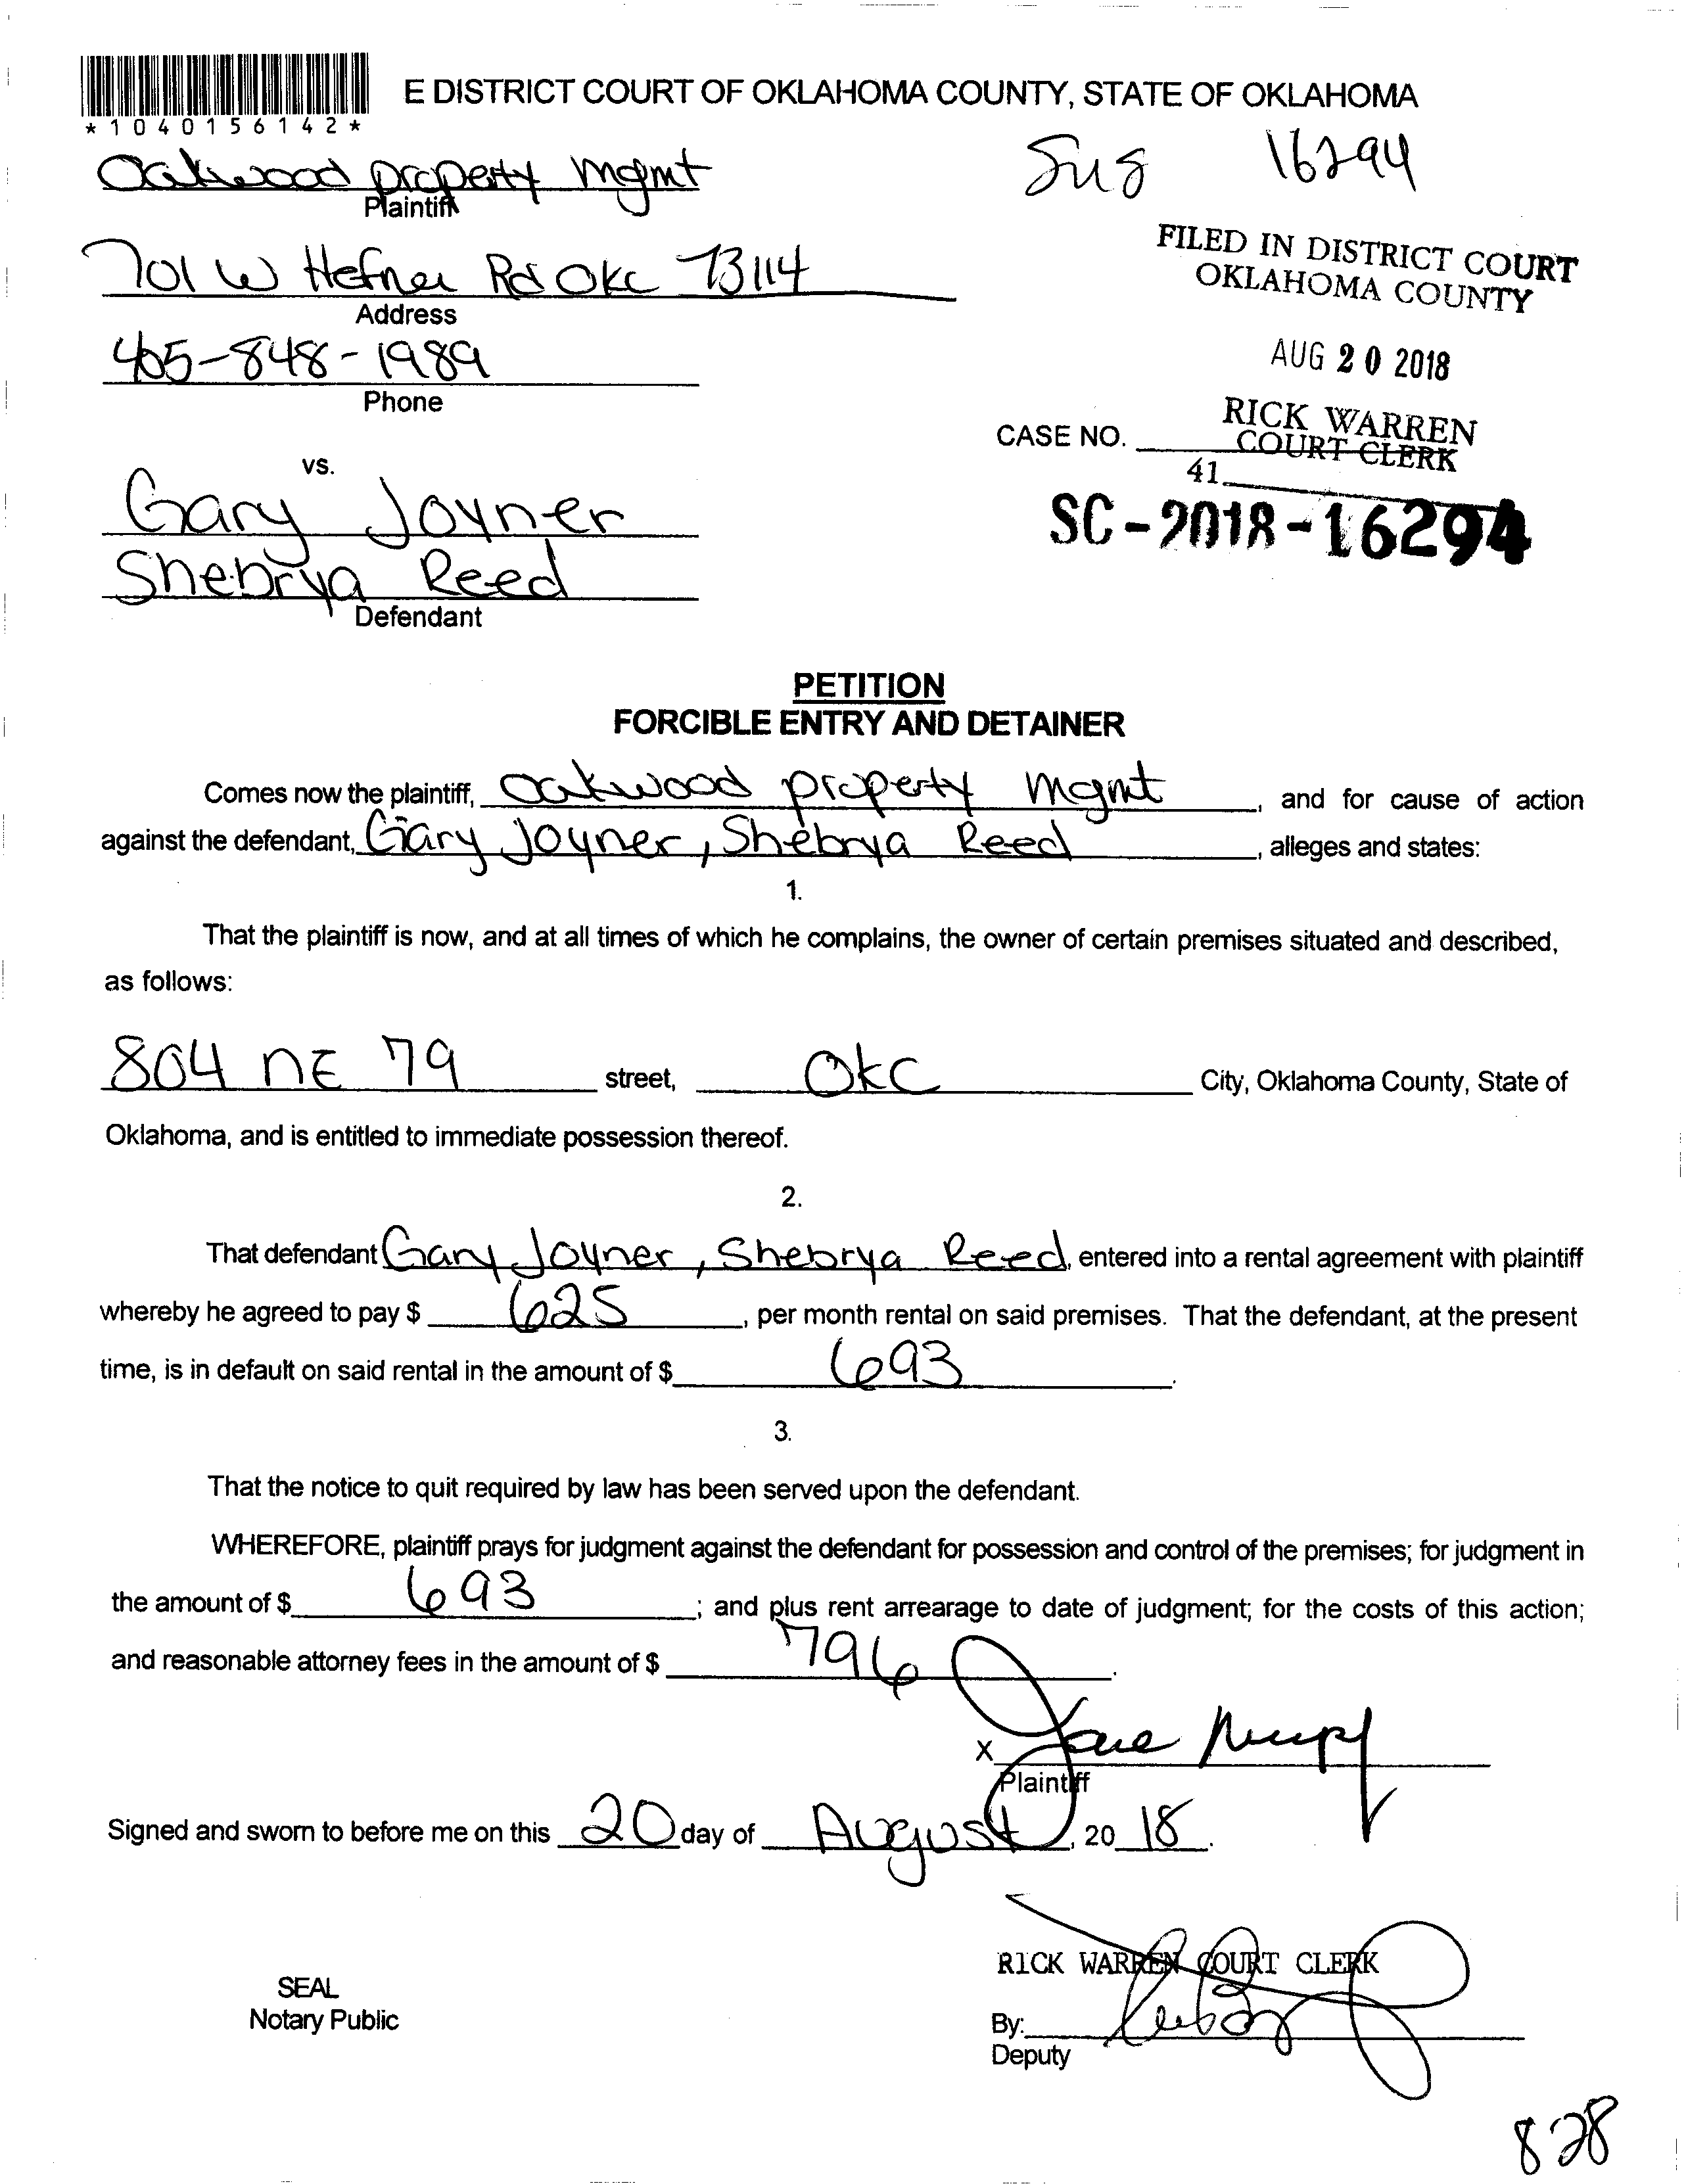 E DISTRICT COURT OF OKLAHOMA COUNTY, STATE OF OKLAHOMA
*1040156142*
Oakwood property mgmt
Plaintiff
16294
701 W Hefner Rd OKC 73114
Address
FILED IN DISTRICT COURT
OKLAHOMA COUNTY
405-848-1989
Phone
AUG 20 2018
RICK WARREN
COURT CLERK
CASE NO.
41
vs.
SC-2018-16294
Gary Joyner
Shebrya Reed
Defendant
PETITION
FORCIBLE ENTRY AND DETAINER
Comes now the plaintiff, Oakwood property mgmt, and for cause of action
against the defendant, Gary Joyner, Shebrya Reed, alleges and states:
1.
That the plaintiff is now, and at all times of which he complains, the owner of certain premises situated and described,
as follows:
804 NE 79 street, OKC City, Oklahoma County, State of
Oklahoma, and is entitled to immediate possession thereof.
2.
That defendant Gary Joyner, Shebrya Reed, entered into a rental agreement with plaintiff
whereby he agreed to pay $ 625, per month rental on said premises. That the defendant, at the present
time, is in default on said rental in the amount of $ 693.
3.
That the notice to quit required by law has been served upon the defendant.
WHEREFORE, plaintiff prays for judgment against the defendant for possession and control of the premises; for judgment in
the amount of $ 693; and plus rent arrearage to date of judgment; for the costs of this action;
and reasonable attorney fees in the amount of $ 796.
X
Plaintiff
Signed and sworn to before me on this 20 day of August, 20 18.
RICK WARREN COURT CLERK
SEAL
Notary Public
By:
Deputy
828